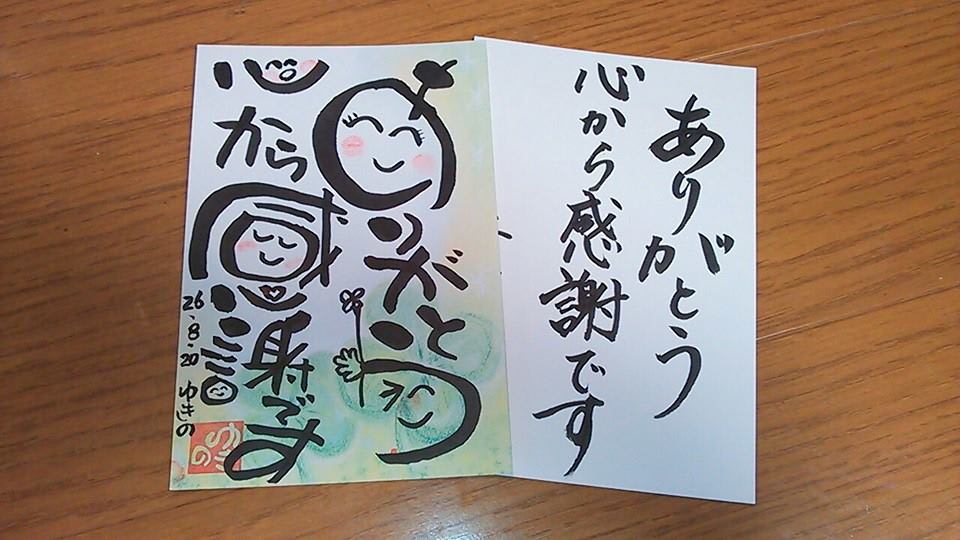 ありがとう
心から感謝です
ありがとう
心から感謝です
26.8.20 ゆきの
ゆきの